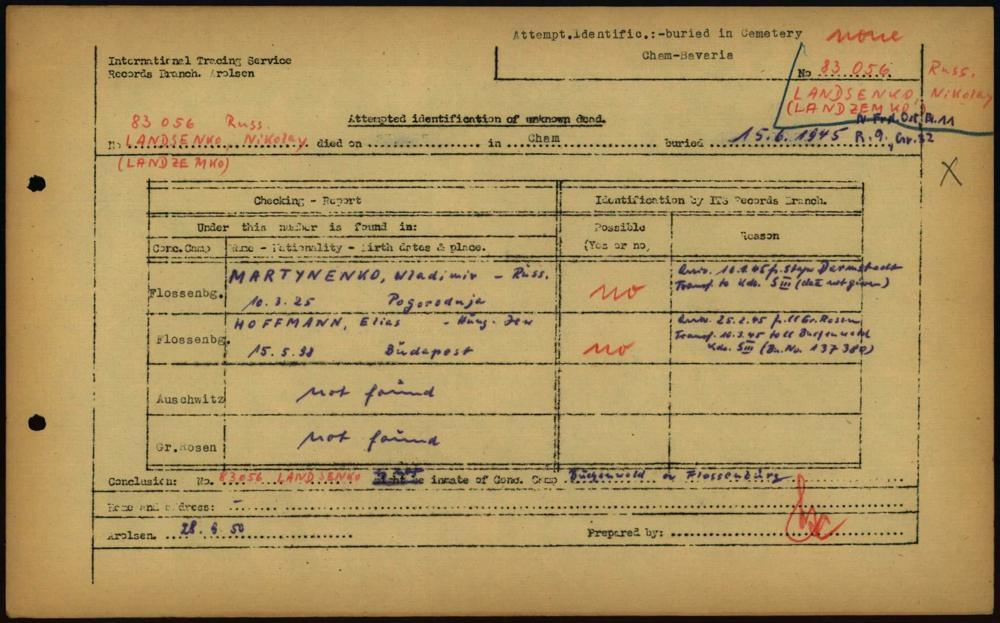 Attempt.Identific.:-buried in Cemetery
Cham-Bavaria
none
International Tracing Service
Records Branch. Arolsen
No 83 056 Russ.
LANDSENKO, Nikolay
(LANDZEMKO)
Attempted identification of unknown dead.
83 056 Russ.
No LANDSENKO, Nikolay died on in Cham buried 15.6.1945 R.9, Gr.32
(LANDZEMKO)
X
Checking - Report
Identification by ITS Records Branch.
Under this number is found in:
Possible (Yes or no)
Reason
Conc.Camp
Name - Nationality - Birth dates & place.
Flossenbg.
MARTYNENKO, Wladimir - Russ.
10.3.25 Pogorodnja
no
Arriv. 10.1.45 Darmstadt
Transf. to Kdo. SIII (date not given)
Flossenbg.
HOFFMANN, Elias - Hung. Jew
15.5.98 Budapest
no
Arriv. 25.2.45 Gr. Rosen
Transf. to Buchenwald
Kdo. SIII (Bu.No. 137380)
Auschwitz
not found
Gr.Rosen
not found
Conclusion: No. 83056 LANDSENKO be inmate of Conc. Camp Buchenwald or Flossenbürg
Home and address: -
Arolsen, 28. 50
Prepared by: